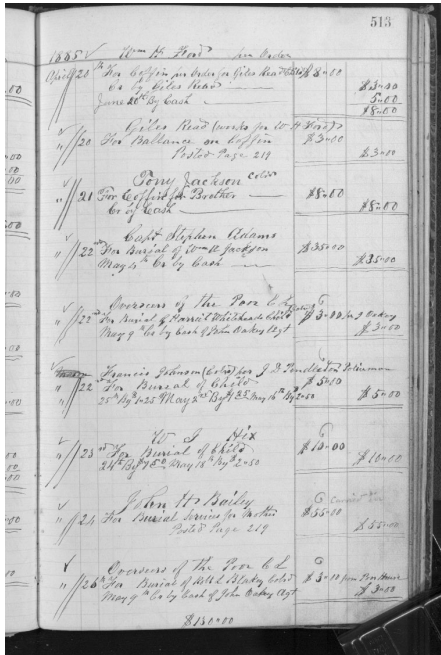 513
1885 Wm H Ford per Order
April 20th For Coffin per Order for Giles Read $8=00
Cr by Giles Read $3=00
June 20th By Cash 5=00
$8=00
Giles Read (works for W H Ford)
" 20 For Ballance on Coffin $3=00
Posted Page 219 $3=00
Tony Jackson Cold
" 21 For Coffin for Brother $8=00
Cr by Cash $8=00
Capt Stephen Adams
" 22nd For Burial of Wm H Jackson $35=00
May 4th Cr by Cash $35=00
Overseers of the Poor C L
" 22nd For Burial of Harriet Whiteheads Child $3=00 J Oakey
May 9th Cr by Cash of John Oakey Agt $3=00
Francis Johnson (Cold) for J D Pendleton Policeman
" 22 For Burial of Child $5=00
25th By $1=25 May 2nd By $1.25 May 16th By $2=50 $5=00
W J Hix
" 23rd For Burial of Child $10=00
24th By $7.50 May 18th By $2=50 $10=00
John H Bailey
" 24 For Burial Services for Mother $55=00
Posted Page 219 $55=00
Overseers of the Poor C L
" 26th For Burial of Blakey Cold $3=10 Poor House
May 9th Cr by Cash of John Oakey Agt $3=00
$130=00